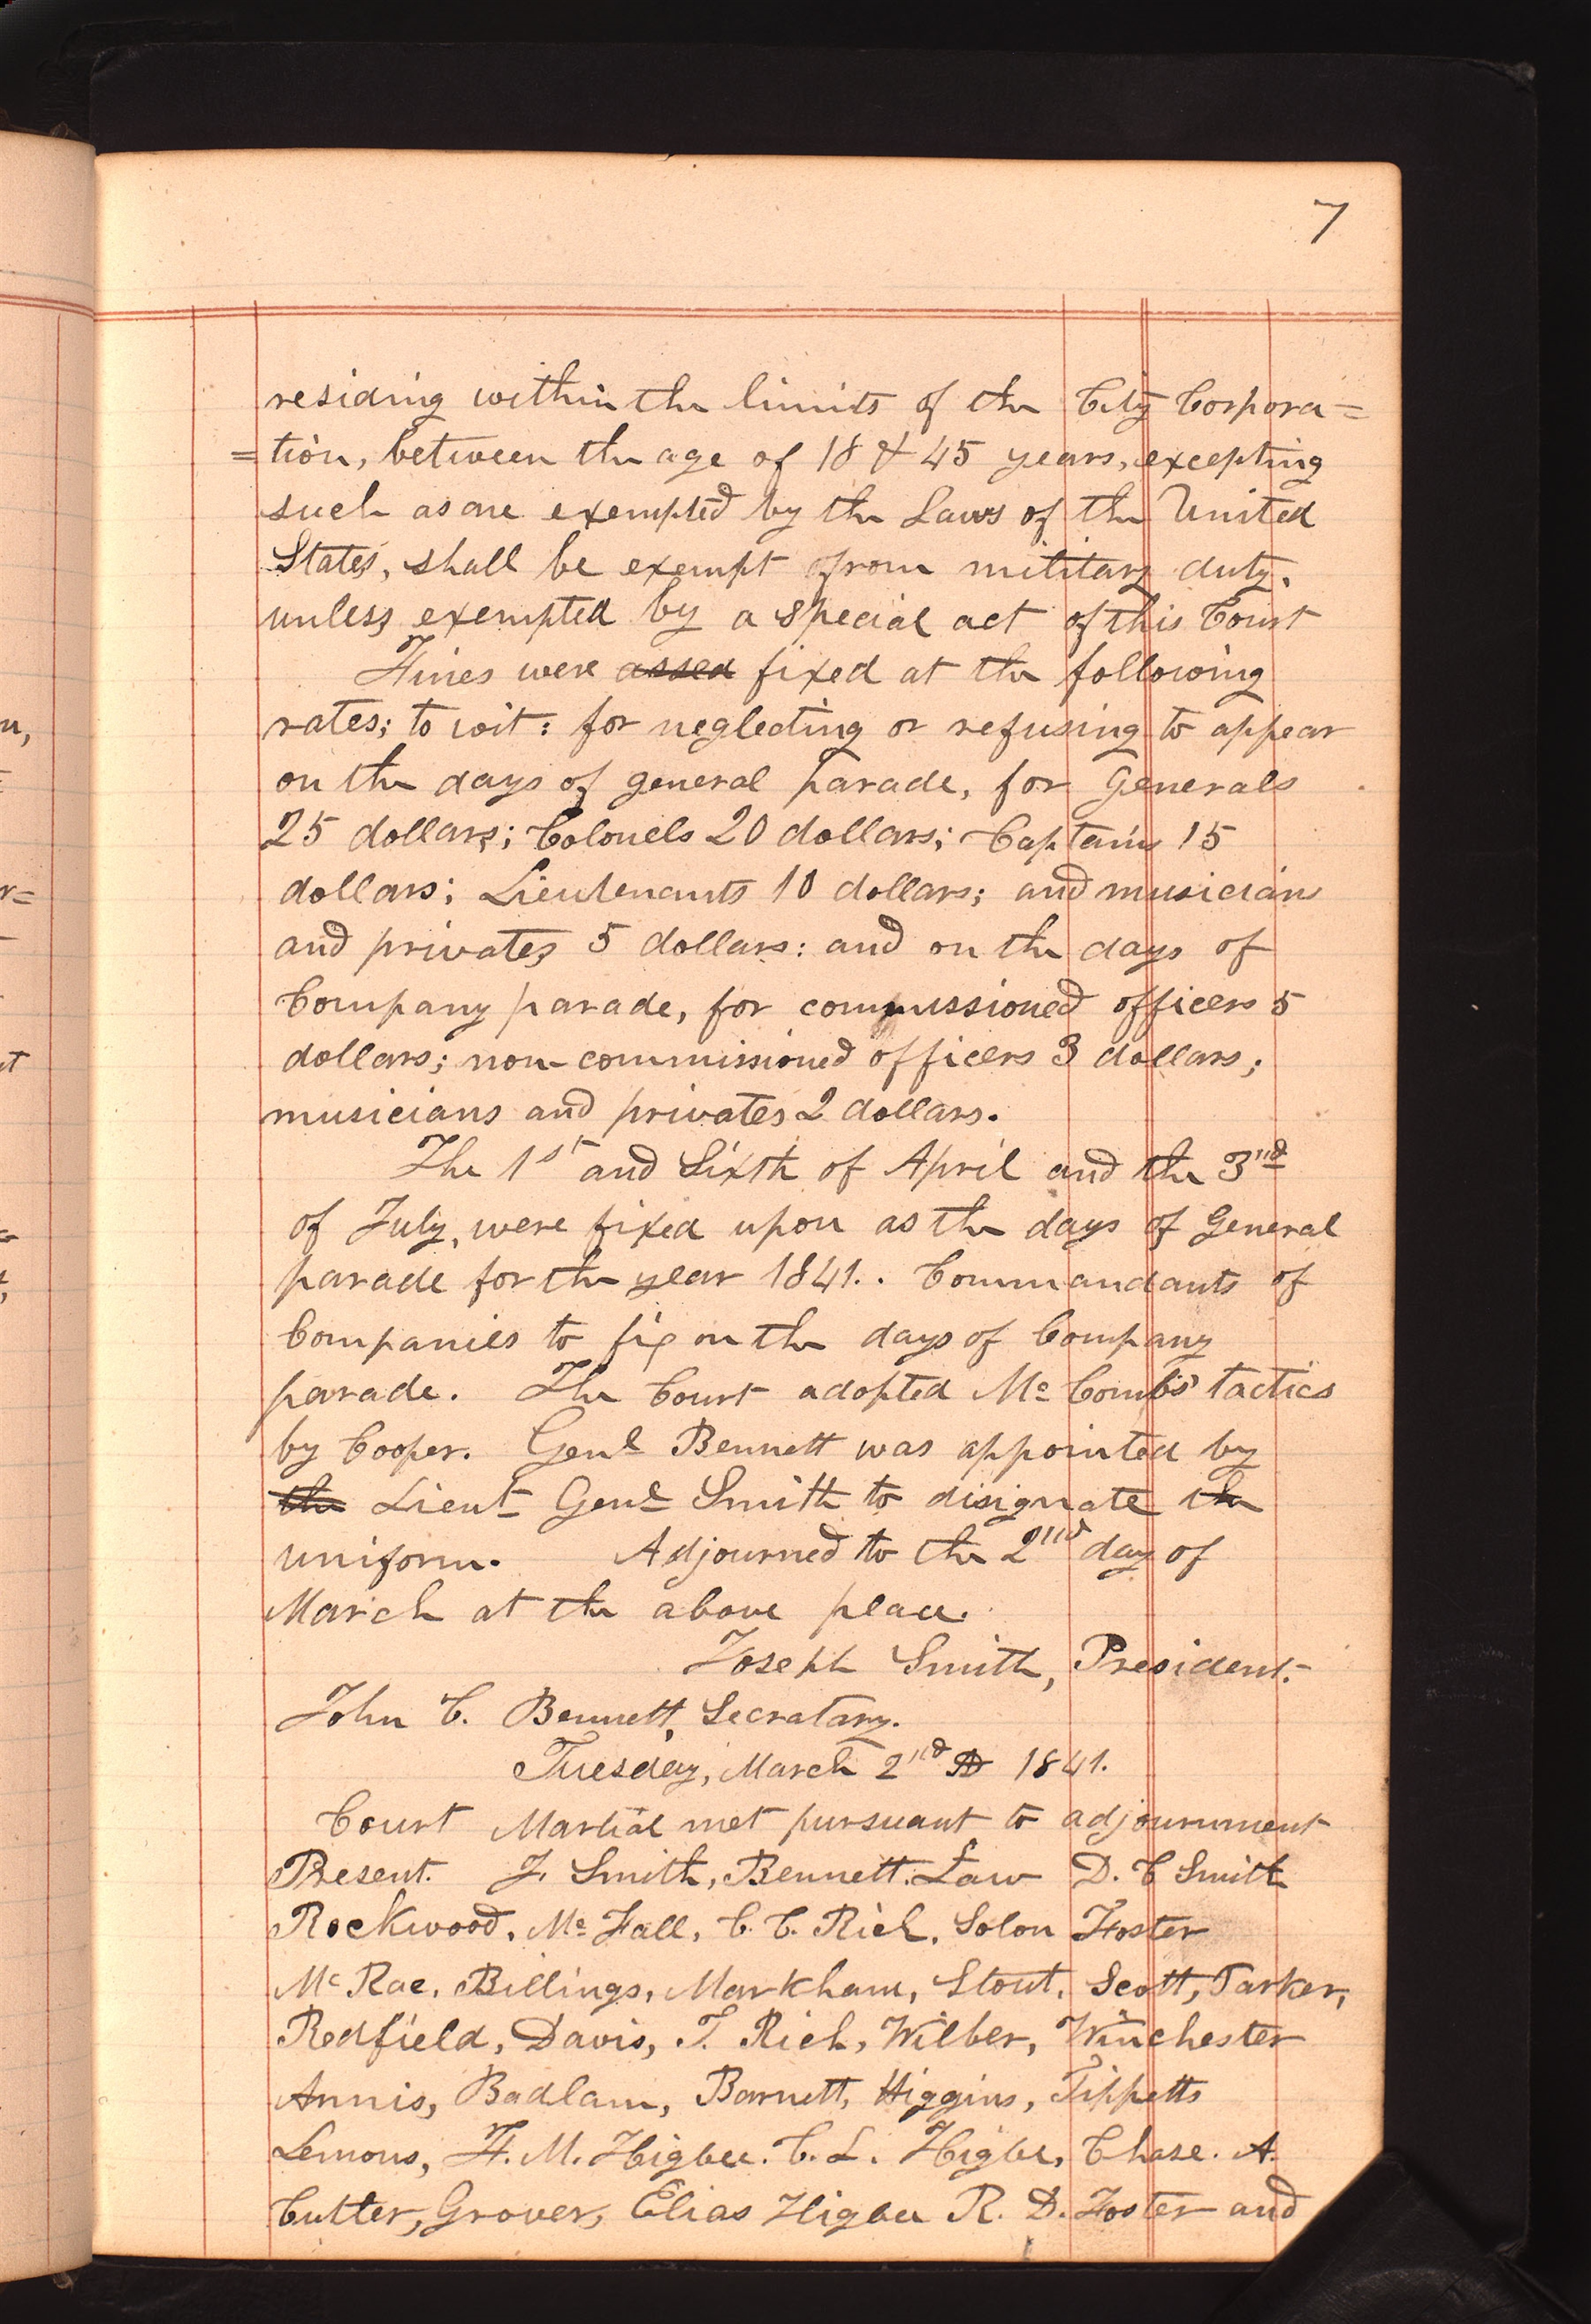 7
residing within the limits of the City Corpora=
=tion, between the age of 18 & 45 years, excepting
such as are exempted by the Laws of the United
States, shall be exempt from military duty.
unless exempted by a special act of this Court
Fines were assed fixed at the following
rates; to wit: for neglecting or refusing to appear
on the days of general parade, for Generals
25 dollars; Colonels 20 dollars; Captains 15
dollars; Lieutenants 10 dollars; and musicians
and privates 5 dollars: and on the days of
Company parade, for commissioned officers 5
dollars; non-commissioned officers 3 dollars;
musicians and privates 2 dollars.
The 1st and Sixth of April and the 3rd
of July, were fixed upon as the days of General
parade for the year 1841.. Commandants of
Companies to fix on the days of Company
parade. The Court adopted Mc Combs' tactics
by Cooper. Genl Bennett was appointed by
the Lieut Genl Smith to disignate the
uniform. Adjourned to the 2nd day of
March at the above place.
Joseph Smith, President.
John C. Bennett, Secratary.
Tuesday, March 2nd AD 1841.
Court Martial met pursuant to adjournment
Present. J. Smith, Bennett. Law D. C Smith
Rockwood, Mc Fall, C. C. Rich, Solon Foster
Mc Rae, Billings, Markham, Stout, Scott, Parker,
Redfield, Davis, T. Rich, Wilber, Winchester
Annis, Badlam, Barnett, Higgins, Tippetts
Lemons, F. M. Higbee. C. L. Higbe, Chase. A.
Cutler, Grover, Elias Higbee R. D. Foster and
n,
r=